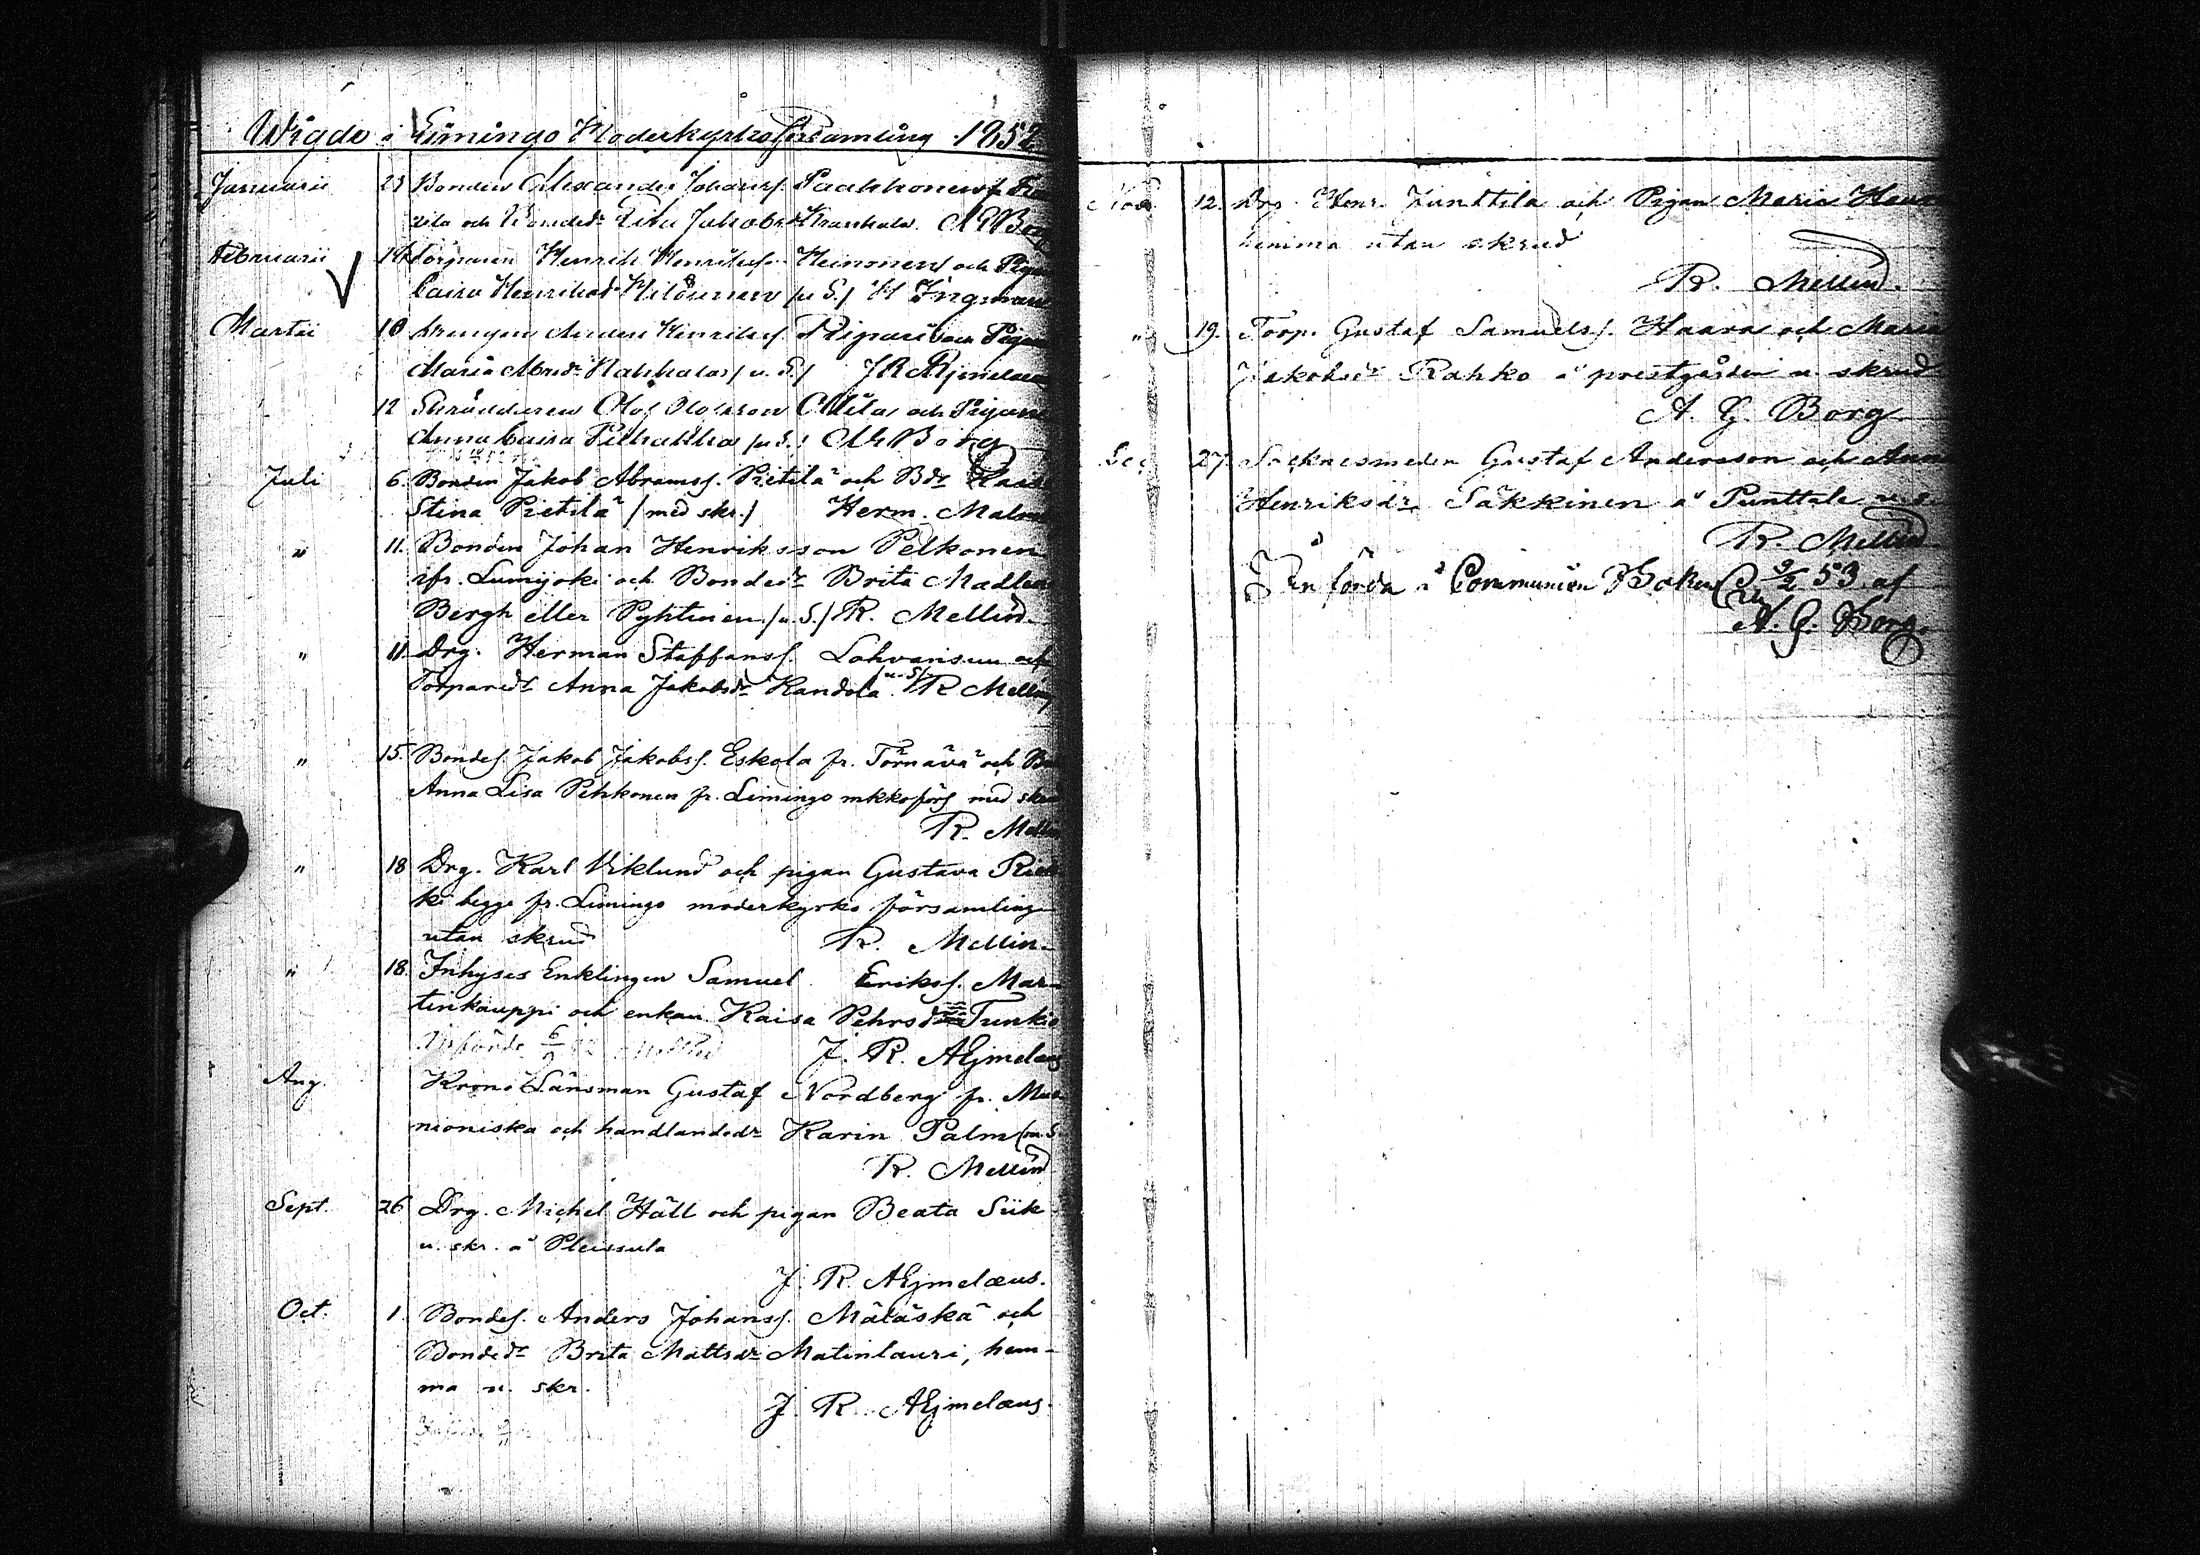 Wigde i Limingo Moderkyrko församling 1852
Januarii 23 Bonden Alexander Johanss. Paakkonen fr.
och Bondedr Lisa Jakobsdr A G Borg
Februarii Torparen Henrik Henrikss. Heinonen och Pigan
Caisa Henriksdr /u S./ H Ingman
Martii 10 Drengen Anders Henrikss. Ripari och Pigan
Maria Abrsdr Nahkala /u. S./ J R Æjmelæus
12 Skräddaren Olof Olofsson och Pigan
Anna Caisa /u S./ A G Borg
Juli 6. Bonden Jakob Abramss. Pietilä och Bdr
Stina Pietilä /med skr./ Herm. Malm
" 11. Bonden Johan Henriksson Pelkonen
ifr. Lumijoki och Bondedr Brita Madlena
Bergh eller Pyhtinen /u. S./ R. Mellin
" 11. Drg. Herman Staffanss. Lohvansuu och
Torparedr Anna Jakobsdr Kandola /u. S/ R Mellin
" 15. Bondes. Jakob Jakobss. Eskola fr. Törnävä och B
Anna Lisa Pehkonen fr. Limingo mkkoförs med skr
R. Mellin
" 18 Drg. Karl Viklund och pigan Gustava
ki begge fr. Limingo moderkyrko församling
utan skrud R. Mellin
" 18. Inhyses Enklingen Samuel Erikss. Mar-
tinkauppi och enkan Kaisa Pehrsdr Junki
Införde 6/9 Mellin J. R. Æjmelæus
Aug. Krono Länsman Gustaf Nordberg fr. Muo
nioniska och handlandedr Karin Palm (m. S
R. Mellin
Sept. 26 Drg. Michel Häll och pigan Beata Siik
u. skr. å Pleissula
J. R. Æjmelæus.
Oct. 1. Bondes. Anders Johanss. Määtäskä och
Bondedr Brita Mattsdr Matinlauri, hem-
ma u. skr.
J. R. Æjmelæus.
Nov. 12. Drg. Henr. Junttila och Pigan Maria
hemma utan skrud
R. Mellin.
" 19. Torp. Gustaf Samuelss. Haara och Maria
Jakobsdr Rahko å prestgården u. skrud
A. G. Borg
Dec. 27 Socknesmeden Gustaf Andersson och Anna
Henriksdr Säkkinen å Punttala u. s.
R. Mellin
Införda i Communion Boken 9/2 53 af
A. G. Borg.